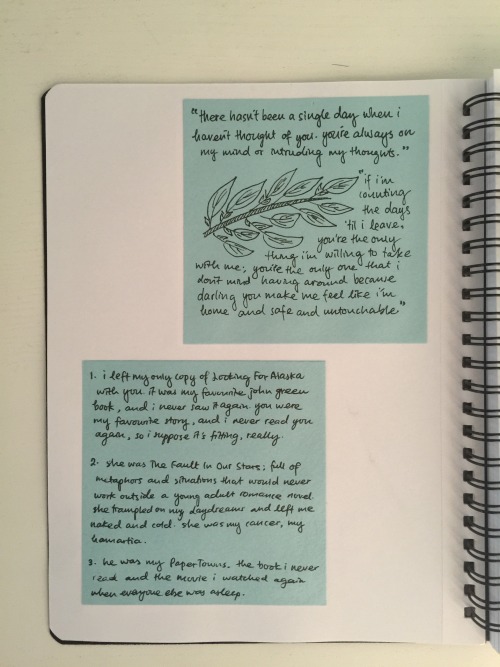 "there hasn't been a single day when i
haven't thought of you. you're always on
my mind or intruding my thoughts."
"if i'm
counting
the days
'til i leave,
you're the only
thing i'm willing to take
with me; you're the only one that i
don't mind having around because
darling you make me feel like i'm
home and safe and untouchable"
1. i left my only copy of Looking For Alaska
with you. it was my favourite john green
book, and i never saw it again. you were
my favourite story, and i never read you
again, so i suppose it's fitting, really.
2. she was The Fault In Our Stars; full of
metaphors and situations that would never
work outside a young adult romance novel.
she trampled on my daydreams and left me
naked and cold. she was my cancer, my
hamartia.
3. he was my Paper Towns. the book i never
read and the movie i watched again
when everyone else was asleep.